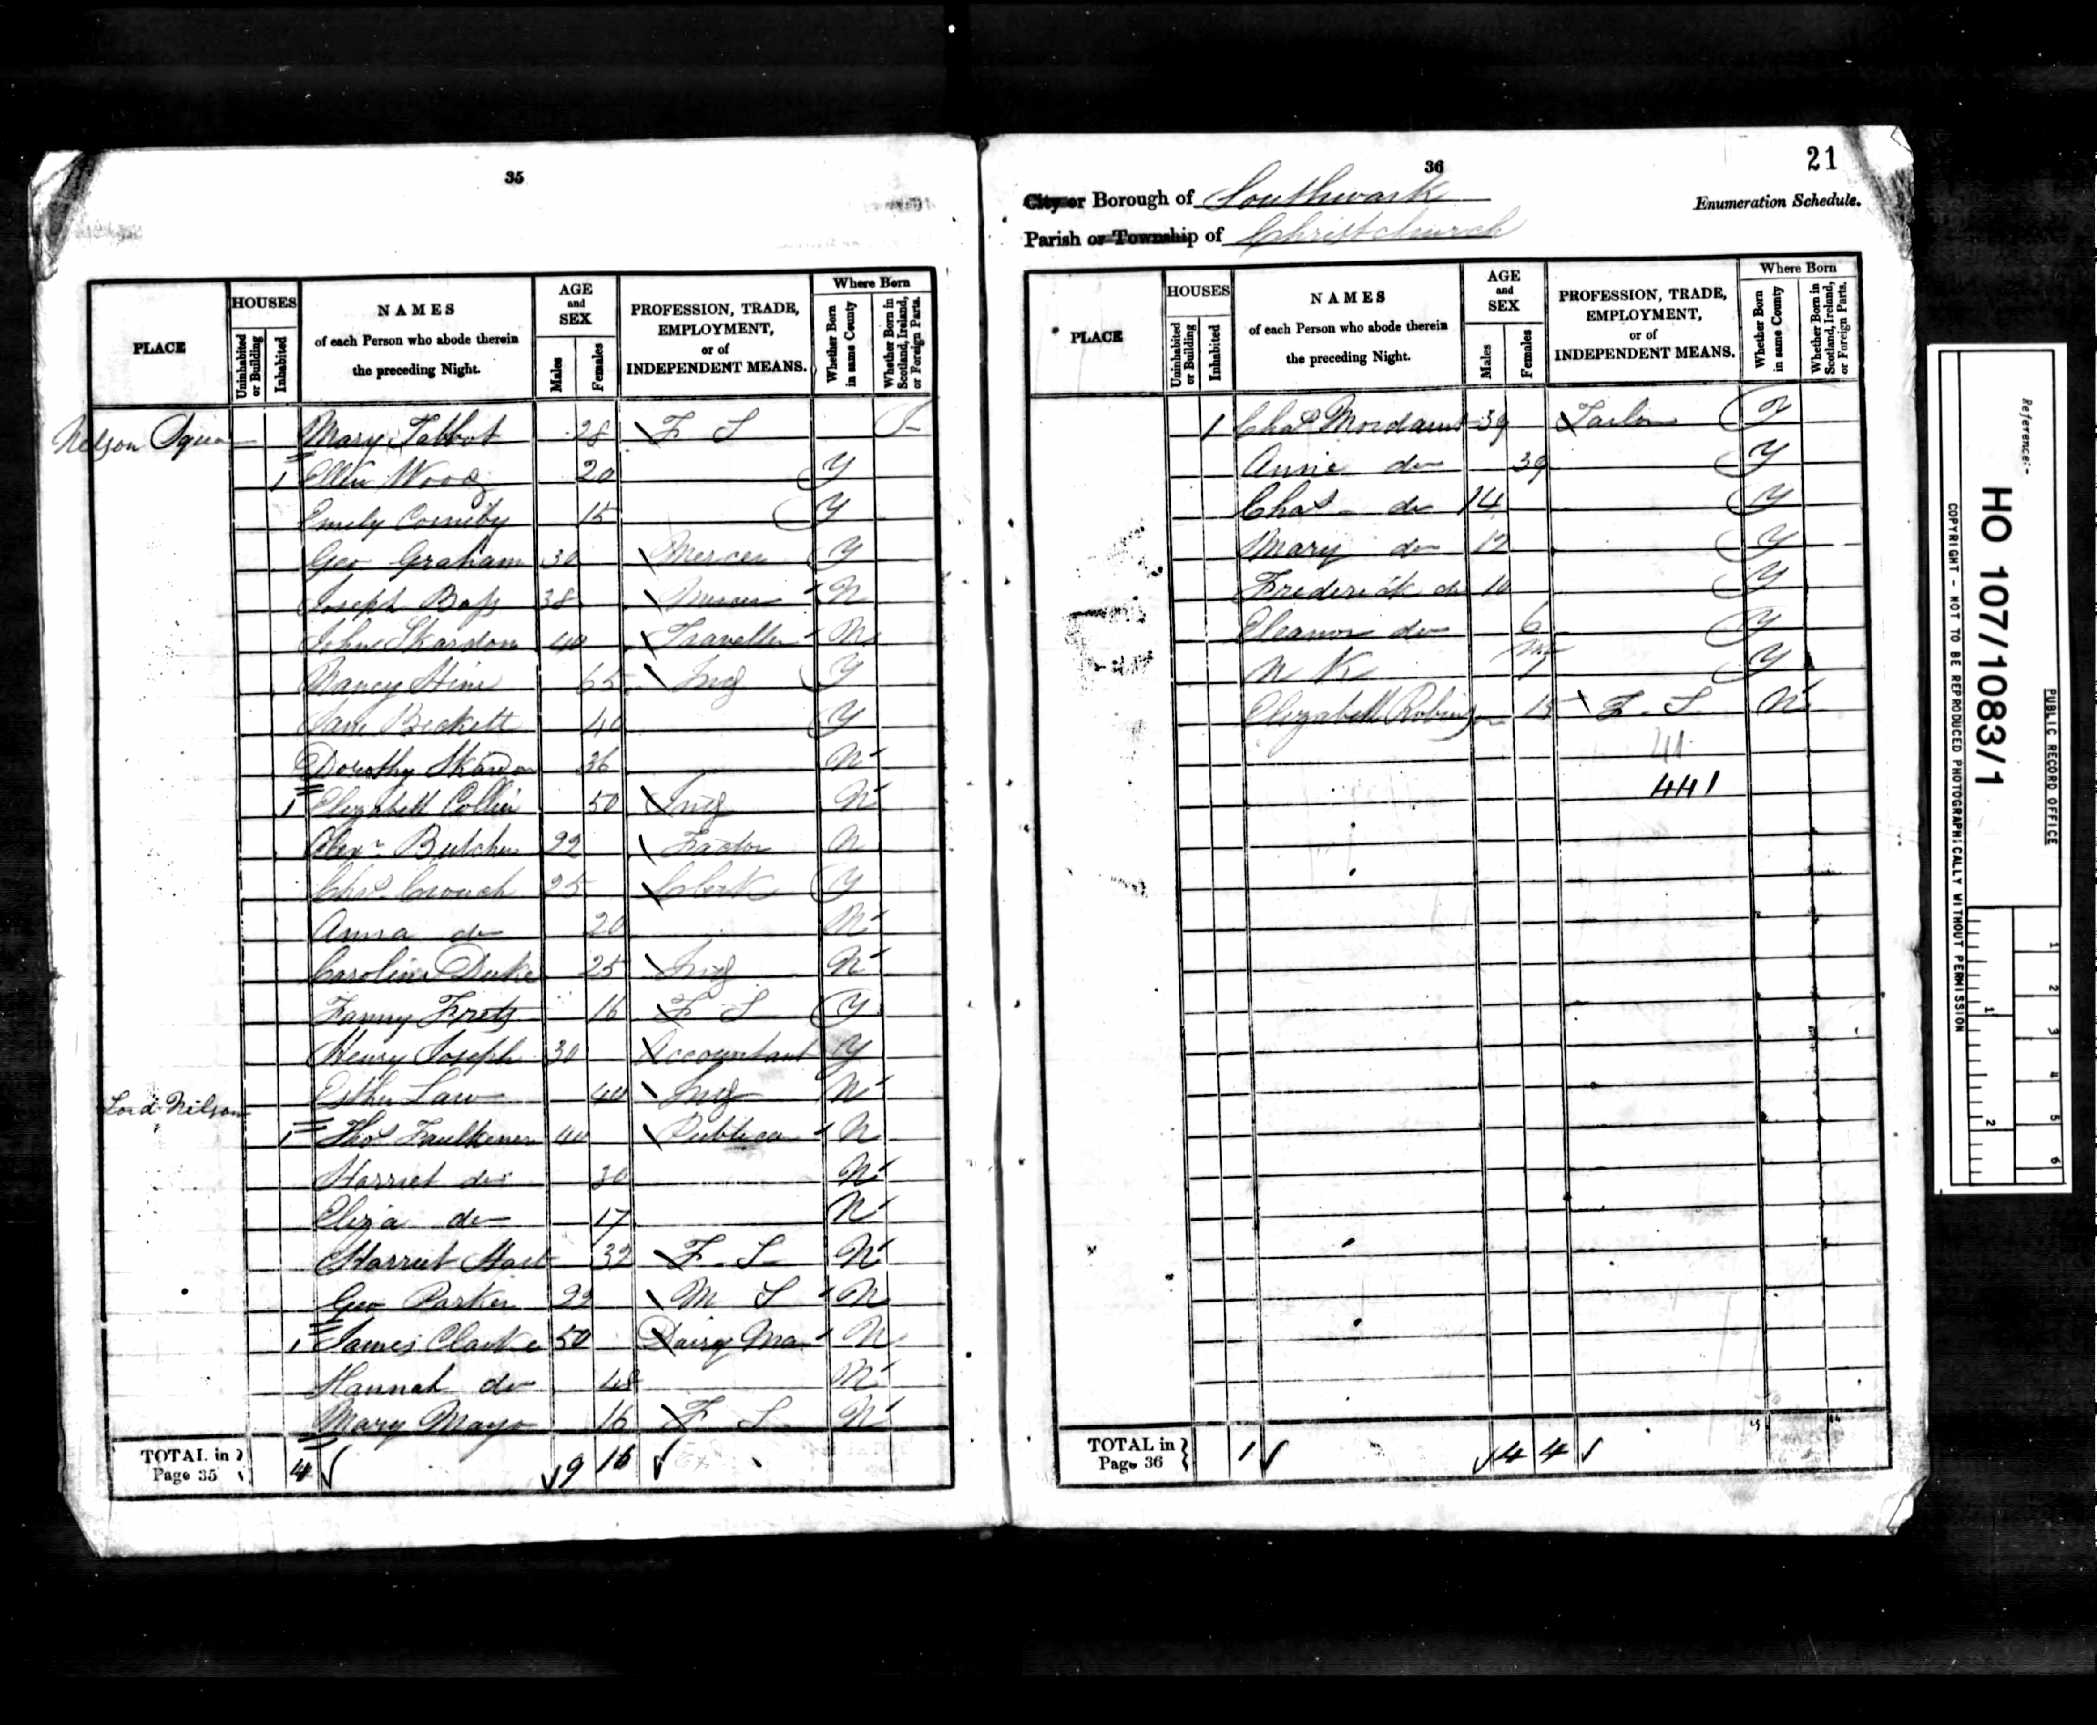 35
PLACE
HOUSES
Uninhabited or Building
Inhabited
NAMES
of each Person who abode therein
the preceding Night.
AGE
and
SEX
Males
Females
PROFESSION, TRADE,
EMPLOYMENT,
or of
INDEPENDENT MEANS.
Where Born
Whether Born in same County
Whether Born in Scotland, Ireland, or Foreign Parts.
Nelson Square Mary Tabbot 28 F S
1 Ellen Wood 20 Y
Emily 15 Y
Geo Graham 30 Mercer Y
Joseph Bass 38 Mercer N
John Skardon 40 Traveller N
Nancy Hine 65 Ind Y
Jane Beckett 40 Y
Dorothy Skardon 36 N
1 Elizabeth Collin 50 Ind N
Alexr Butcher 22 Factor N
Chas Crouch 25 Clerk Y
Anna do 20 N
Caroline Duke 25 Ind N
Fanny 16 F S Y
Henry Joseph 30 Accountant Y
Esther Law 40 Ind N
Lord Nelson 1 Thos Faulkener 40 Publican N
Harriet do 30 N
Eliza do 17 N
Harriet 32 F S N
Geo Parker 22 M S N
1 James Clarke 50 Dairy Man N
Hannah do 48 N
Mary Mayo 16 F S N
TOTAL in
Page 35 4 9 16
36
21
City or Borough of Southwark
Enumeration Schedule.
Parish or Township of Christchurch
PLACE
HOUSES
Uninhabited or Building
Inhabited
NAMES
of each Person who abode therein
the preceding Night.
AGE
and
SEX
Males
Females
PROFESSION, TRADE,
EMPLOYMENT,
or of
INDEPENDENT MEANS.
Where Born
Whether Born in same County
Whether Born in Scotland, Ireland, or Foreign Parts.
1 Chas Mordaunt 39 Tailor Y
Annie do 39 Y
Chas do 14 Y
Mary do 12 Y
Frederick do 10 Y
Eleanor do 6 Y
N K Y
Elizabeth Robinson 15 F S N
441
TOTAL in
Page 36 1 4 4
Reference:-
HO 107/1083/1
PUBLIC RECORD OFFICE
COPYRIGHT - NOT TO BE REPRODUCED PHOTOGRAPHICALLY WITHOUT PERMISSION
1 2 3 4 5 6
1 2